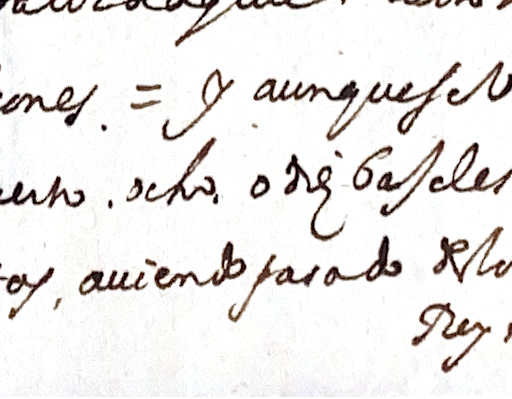 iones = y aunque se V
uerto. ocho. o diez Baseles
tos, auiendo pasado de lo
Rey